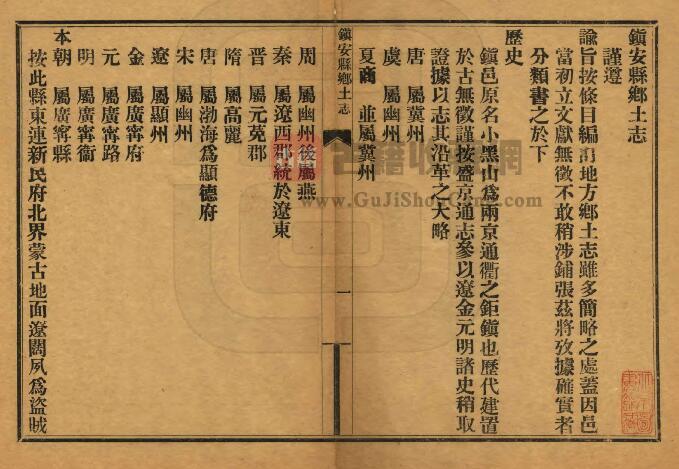 鎭安縣鄕土志
謹遵
諭旨按條目編輯地方鄕土志雖多簡略之處蓋因邑
當初立文獻無徵不敢稍涉鋪張茲將攷據確實者
分類書之於下
歷史
鎭邑原名小黑山爲兩京通衢之鉅鎭也歷代建置
於古無徵謹按盛京通志參以遼金元明諸史稍取
證據以志其沿革之大略
唐　屬冀州
虞　屬幽州
夏商　並屬冀州
鎭安縣鄕土志
一
周　屬幽州後屬燕
秦　屬遼西郡統於遼東
晉　屬元菟郡
隋　屬高麗
唐　屬渤海爲顯德府
宋　屬幽州
遼　屬顯州
金　屬廣寧府
元　屬廣寧路
明　屬廣寧衞
本朝　屬廣寧縣
按此縣東連新民府北界蒙古地面遼闊夙爲盜賊
www.GuJiShouCang.com